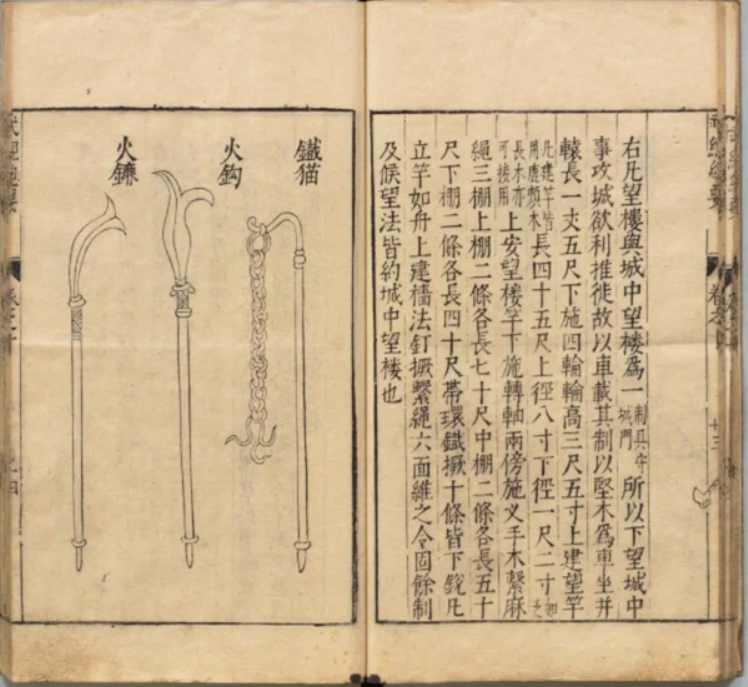 右凡望樓與城中望楼爲一制具守城門所以下望城中
事攻城欲利推徙故以車載其制以堅木爲車坐并
轅長一丈五尺下施四輪輪高三尺五寸上建望竿
凡建竿皆用鹿頰木長四十五尺上徑八寸下徑一尺二寸如之
長木亦可接用上安望楼竿下施轉軸兩傍施义手木繫麻
繩三棚上棚二條各長七十尺中棚二條各長五十
尺下棚二條各長四十尺帶環鐵橛十條皆下銳凡
立竿如舟上建檣法釘橛繫繩六面維之令固餘制
及候望法皆約城中望楼也
鐵猫
火鈎
火鐮